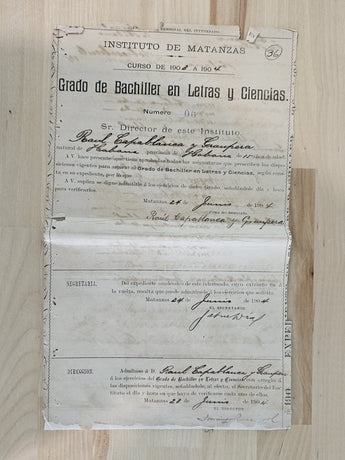 PERSONAL DEL INTERESADO.
36
INSTITUTO DE MATANZAS
CURSO DE 1903 A 1904
Grado de Bachiller en Letras y Ciencias.
Número
Sr. Director de este Instituto.
Raul Capablanca y Graupera
natural de Habana provincia de Habana de 15 años de edad
A V. hace presente que
vigentes para aspirar al Grado de Bachiller en Letras y Ciencias, según
en su expediente, por lo que
A V. suplica se digne admitirle á los ejercicios de dicho Grado, señalándole día y hora
para verificarlos.
Matanzas 24 de Junio de 1904
FIRMA DEL INTERESADO,
Raúl Capablanca y Graupera
SECRETARIA.
Del expediente académico de este interesado, cuyo extracto va á
la vuelta, resulta que puede admitírsele á los ejercicios que solicita.
Matanzas 24 de Junio de 1904
EL SECRETARIO
DIRECCION.
Admítase á D. Raul Capablanca y Graupera
á los ejercicios del Grado de Bachiller en Letras y Ciencias con arreglo á
las disposiciones vigentes, señalándole, al efecto, el Secretario del Instituto
el día y hora en que haya de verificarse cada uno de ellos.
Matanzas 28 de Junio de 1904
EL DIRECTOR